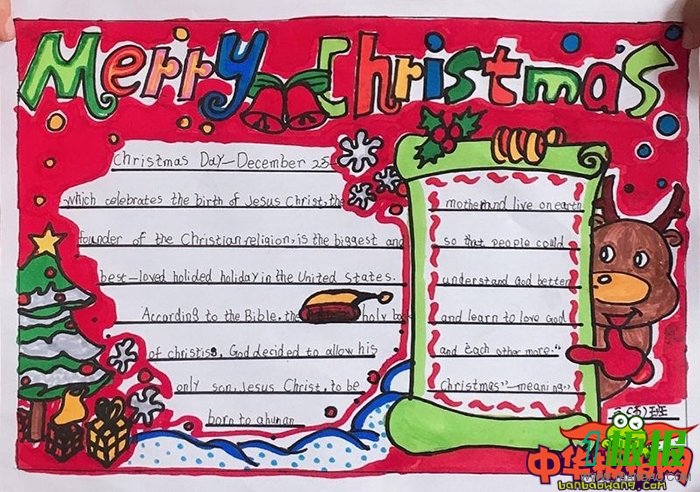 Merry Christmas
Christmas Day—December 25
which celebrates the birth of Jesus Christ, the
founder of the Christian religion, is the biggest and
best-loved holided holiday in the United States.
According to the Bible, the holy book
of christiss, God decided to allow his
only son, Jesus Christ, to be
born to a human
mother and live on earth
so that people could
understand God better
and learn to love God
and each other more."
Christmas"-meaning"
班
中华报网
banbaowang.com